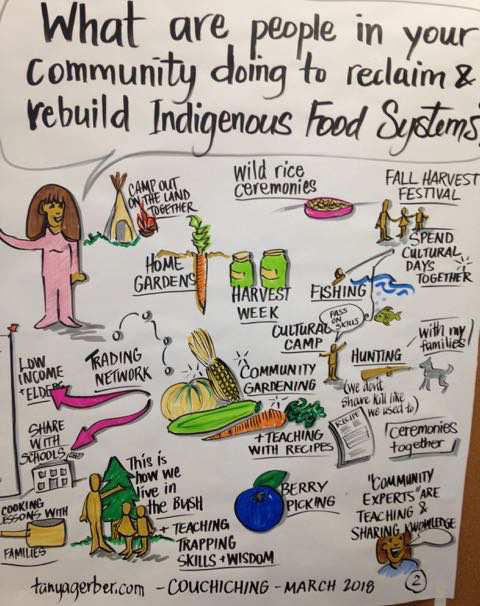 What are people in your
community doing to reclaim &
rebuild Indigenous Food Systems
CAMP OUT
ON THE LAND
TOGETHER
wild rice
ceremonies
FALL HARVEST
FESTIVAL
SPEND
CULTURAL
DAYS
TOGETHER
HOME
GARDENS
HARVEST
WEEK
FISHING
PASS
ON
SKILLS
CULTURAL
CAMP
HUNTING
with my
families
(we don't
share kill like
we used to)
LOW
INCOME
+ ELDERS
TRADING
NETWORK
COMMUNITY
GARDENING
+ TEACHING
WITH RECIPES
RECIPE
Ceremonies
together
SHARE
WITH
SCHOOLS
COOKING
LESSONS WITH
FAMILIES
This is
how we
live in
the BUSH
+ TEACHING
TRAPPING
SKILLS + WISDOM
BERRY
PICKING
"COMMUNITY
EXPERTS" ARE
TEACHING &
SHARING KNOWLEDGE
tanyagerber.com - COUCHICHING - MARCH 2018
2